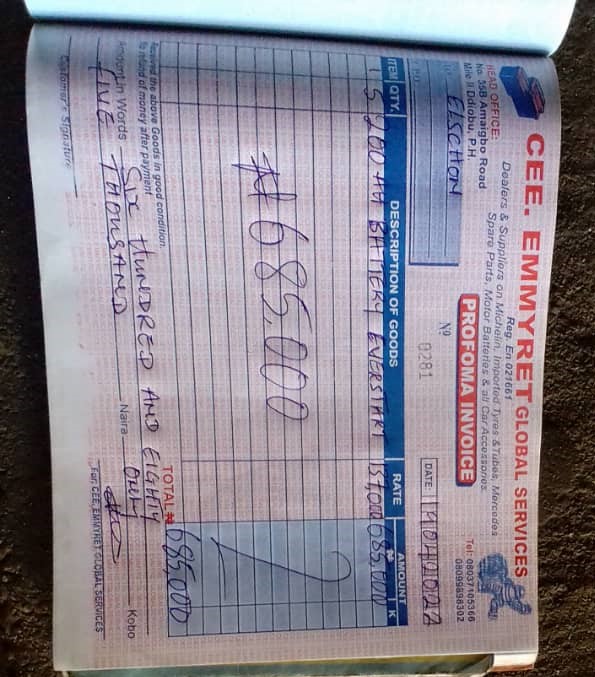 CEE. EMMYRET GLOBAL SERVICES
Reg. En 021661
Dealers & Suppliers on Michelin, Imported Tyres & Tubes, Mercedes
Spare Parts, Motor Batteries & all Car Accessories.
HEAD OFFICE:
No. 35B Amaigbo Road
Mile II Ddiobu, P.H.
Tel: 08037105366
08099898302
PROFOMA INVOICE
ELSCHON
No 0281
DATE: 19/04/2022
ITEM QTY. DESCRIPTION OF GOODS RATE AMOUNT
₦ K
1 5 200 AH BATTERY EVERSTART 137,000 685,000
₦685,000
TOTAL ₦ 685,000
Received the above Goods in good condition.
to refund of money after payment
Amount in Words Six HUNDRED AND EIGHTY
FIVE THOUSAND Naira ONLY Kobo
Customer's Signature
For: CEE. EMMYRET GLOBAL SERVICES